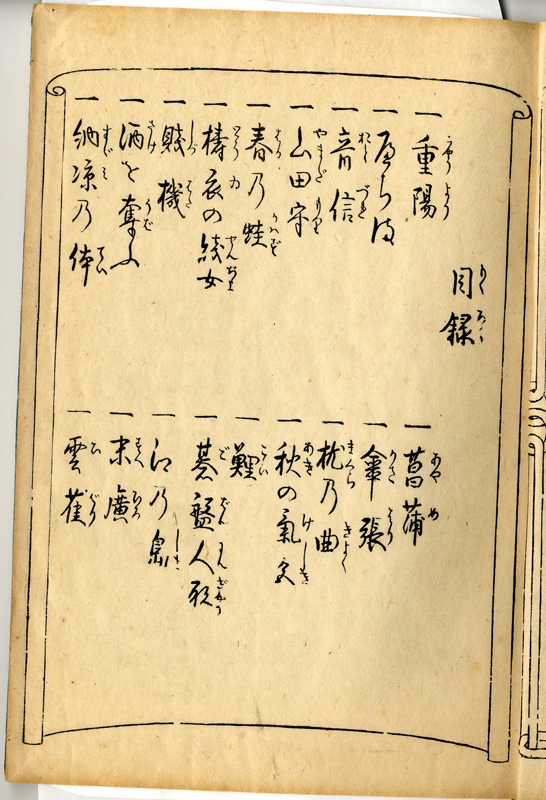 目録
一 重陽
一
一 音信
一 山田守
一 春乃蛙
一 擣衣の綫女
一 賤機
一 酒を奪ふ
一 納凉乃体
一 菖蒲
一 傘張
一 枕乃曲
一 秋の氣色
一 鯉
一 碁盤人形
一 江乃島
一 末廣
一 雲雀